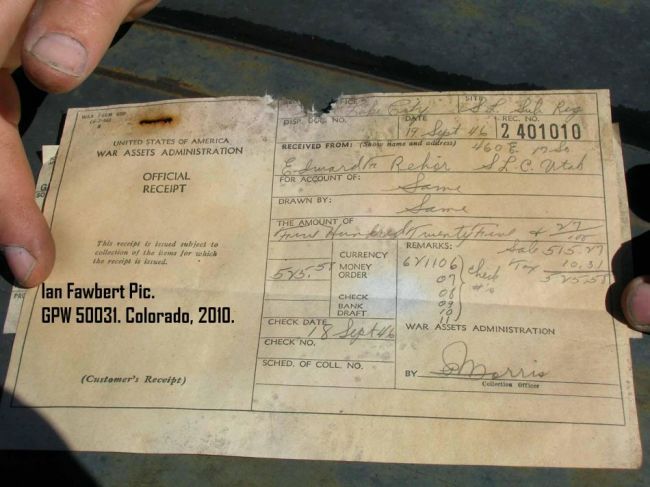 WAA FORM
OFFICE Lake City SITE S L Sub Reg
DISP. DOC. NO. DATE 19 Sept 46 REC. NO. 2 401010
UNITED STATES OF AMERICA
WAR ASSETS ADMINISTRATION
OFFICIAL
RECEIPT
This receipt is issued subject to
collection of the items for which
the receipt is issued.
(Customer's Receipt)
RECEIVED FROM: (Show name and address) 460 E
Edward Rehor S L C, Utah
FOR ACCOUNT OF: Same
DRAWN BY: Same
THE AMOUNT OF
Five Hundred Twenty Five &
REMARKS: Sale 515.27
Tax 10.31
525.58
621106 Check
07 #'s
08
09
10
11
CURRENCY
525.58 MONEY
ORDER
CHECK
BANK
DRAFT
CHECK DATE 18 Sept 46
CHECK NO.
SCHED. OF COLL. NO.
WAR ASSETS ADMINISTRATION
BY Morris
Collection Officer
Ian Fawbert Pic.
GPW 50031. Colorado, 2010.